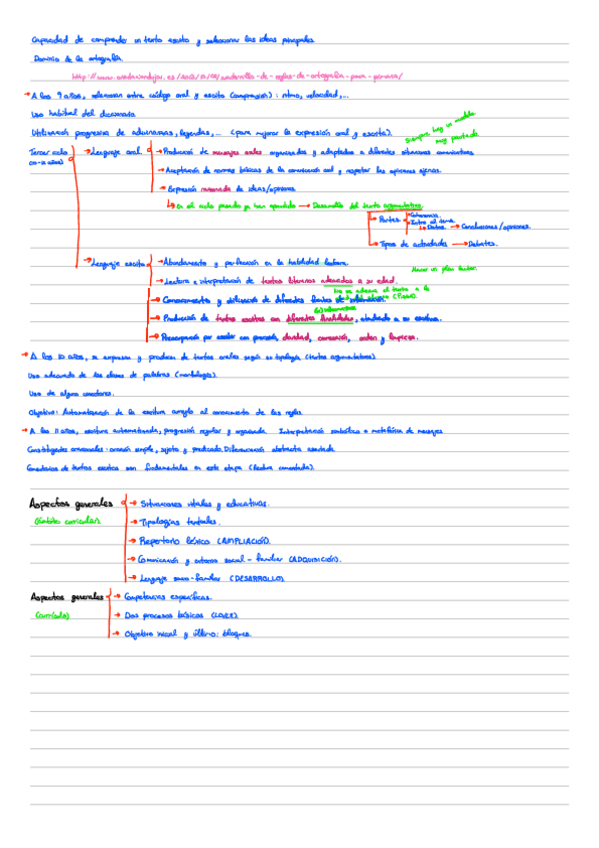 Capacidad de comprender un texto escrito y seleccionar las ideas principales.
Dominio de la ortografía.
→ A los 9 años, relacionan entre código oral y escrito (comprensión): ritmo, velocidad,...
Uso habitual del diccionario
Utilización progresiva de adivinanzas, leyendas,... (para mejorar la expresión oral y escrita).
Siempre hay un modelo muy pautado.
Tercer ciclo
→ Lenguaje oral
→ Producción de mensajes orales organizados y adaptados a diferentes situaciones comunicativas
→ Aceptación de normas básicas de la comunicación oral y respetar las opiniones ajenas.
→ Expresión razonada de ideas/opiniones
↳ En el ciclo pasado ya han aprendido → Desarrollo del texto argumentativo.
→ Partes.
Coherencia.
Intro al tema.
↳ Datos. → Conclusiones/opiniones.
→ Tipos de actividades → Debates.
→ Lenguaje escrito
→ Afianzamiento y perfección en la habilidad lectora.
Hacer un plan lector.
→ Lectura e interpretación de textos literarios adecuados a su edad.
→ Conocimiento y utilización de diferentes fuentes de
→ Producción de textos escritos con diferentes finalidades, atendiendo a su escritura.
→ Preocupación por escribir con precisión, claridad, corrección, orden y limpieza.
→ A los 10 años, se expresan y producen de textos orales según su tipología (textos argumentativos).
Uso adecuado de las clases de palabras (morfología).
Uso de algunos conectores.
Objetivo: Automatización de la escritura arreglo al conocimiento de las reglas.
→ A los 11 años, escritura automatizada, progresión regular y organizada. Interpretación simbólica o metafórica de mensajes
Constituyentes oracionales: oración simple, sujeto y predicado. Diferenciación abstracta asentada.
Comentarios de textos escritos son fundamentales en esta etapa (lectura comentada).
Aspectos generales
(ámbito curricular)
→ Situaciones vitales y educativas.
→ Tipologías textuales.
→ Repertorio léxico (AMPLIACIÓN).
→ Comunicación y entorno social-familiar (ADQUISICIÓN).
→ Lenguaje socio-familiar (DESARROLLO)
Aspectos generales
(currículo)
→ Competencias específicas.
→ Dos procesos básicos (LOE).
→ Objetivo inicial y último: bloques.